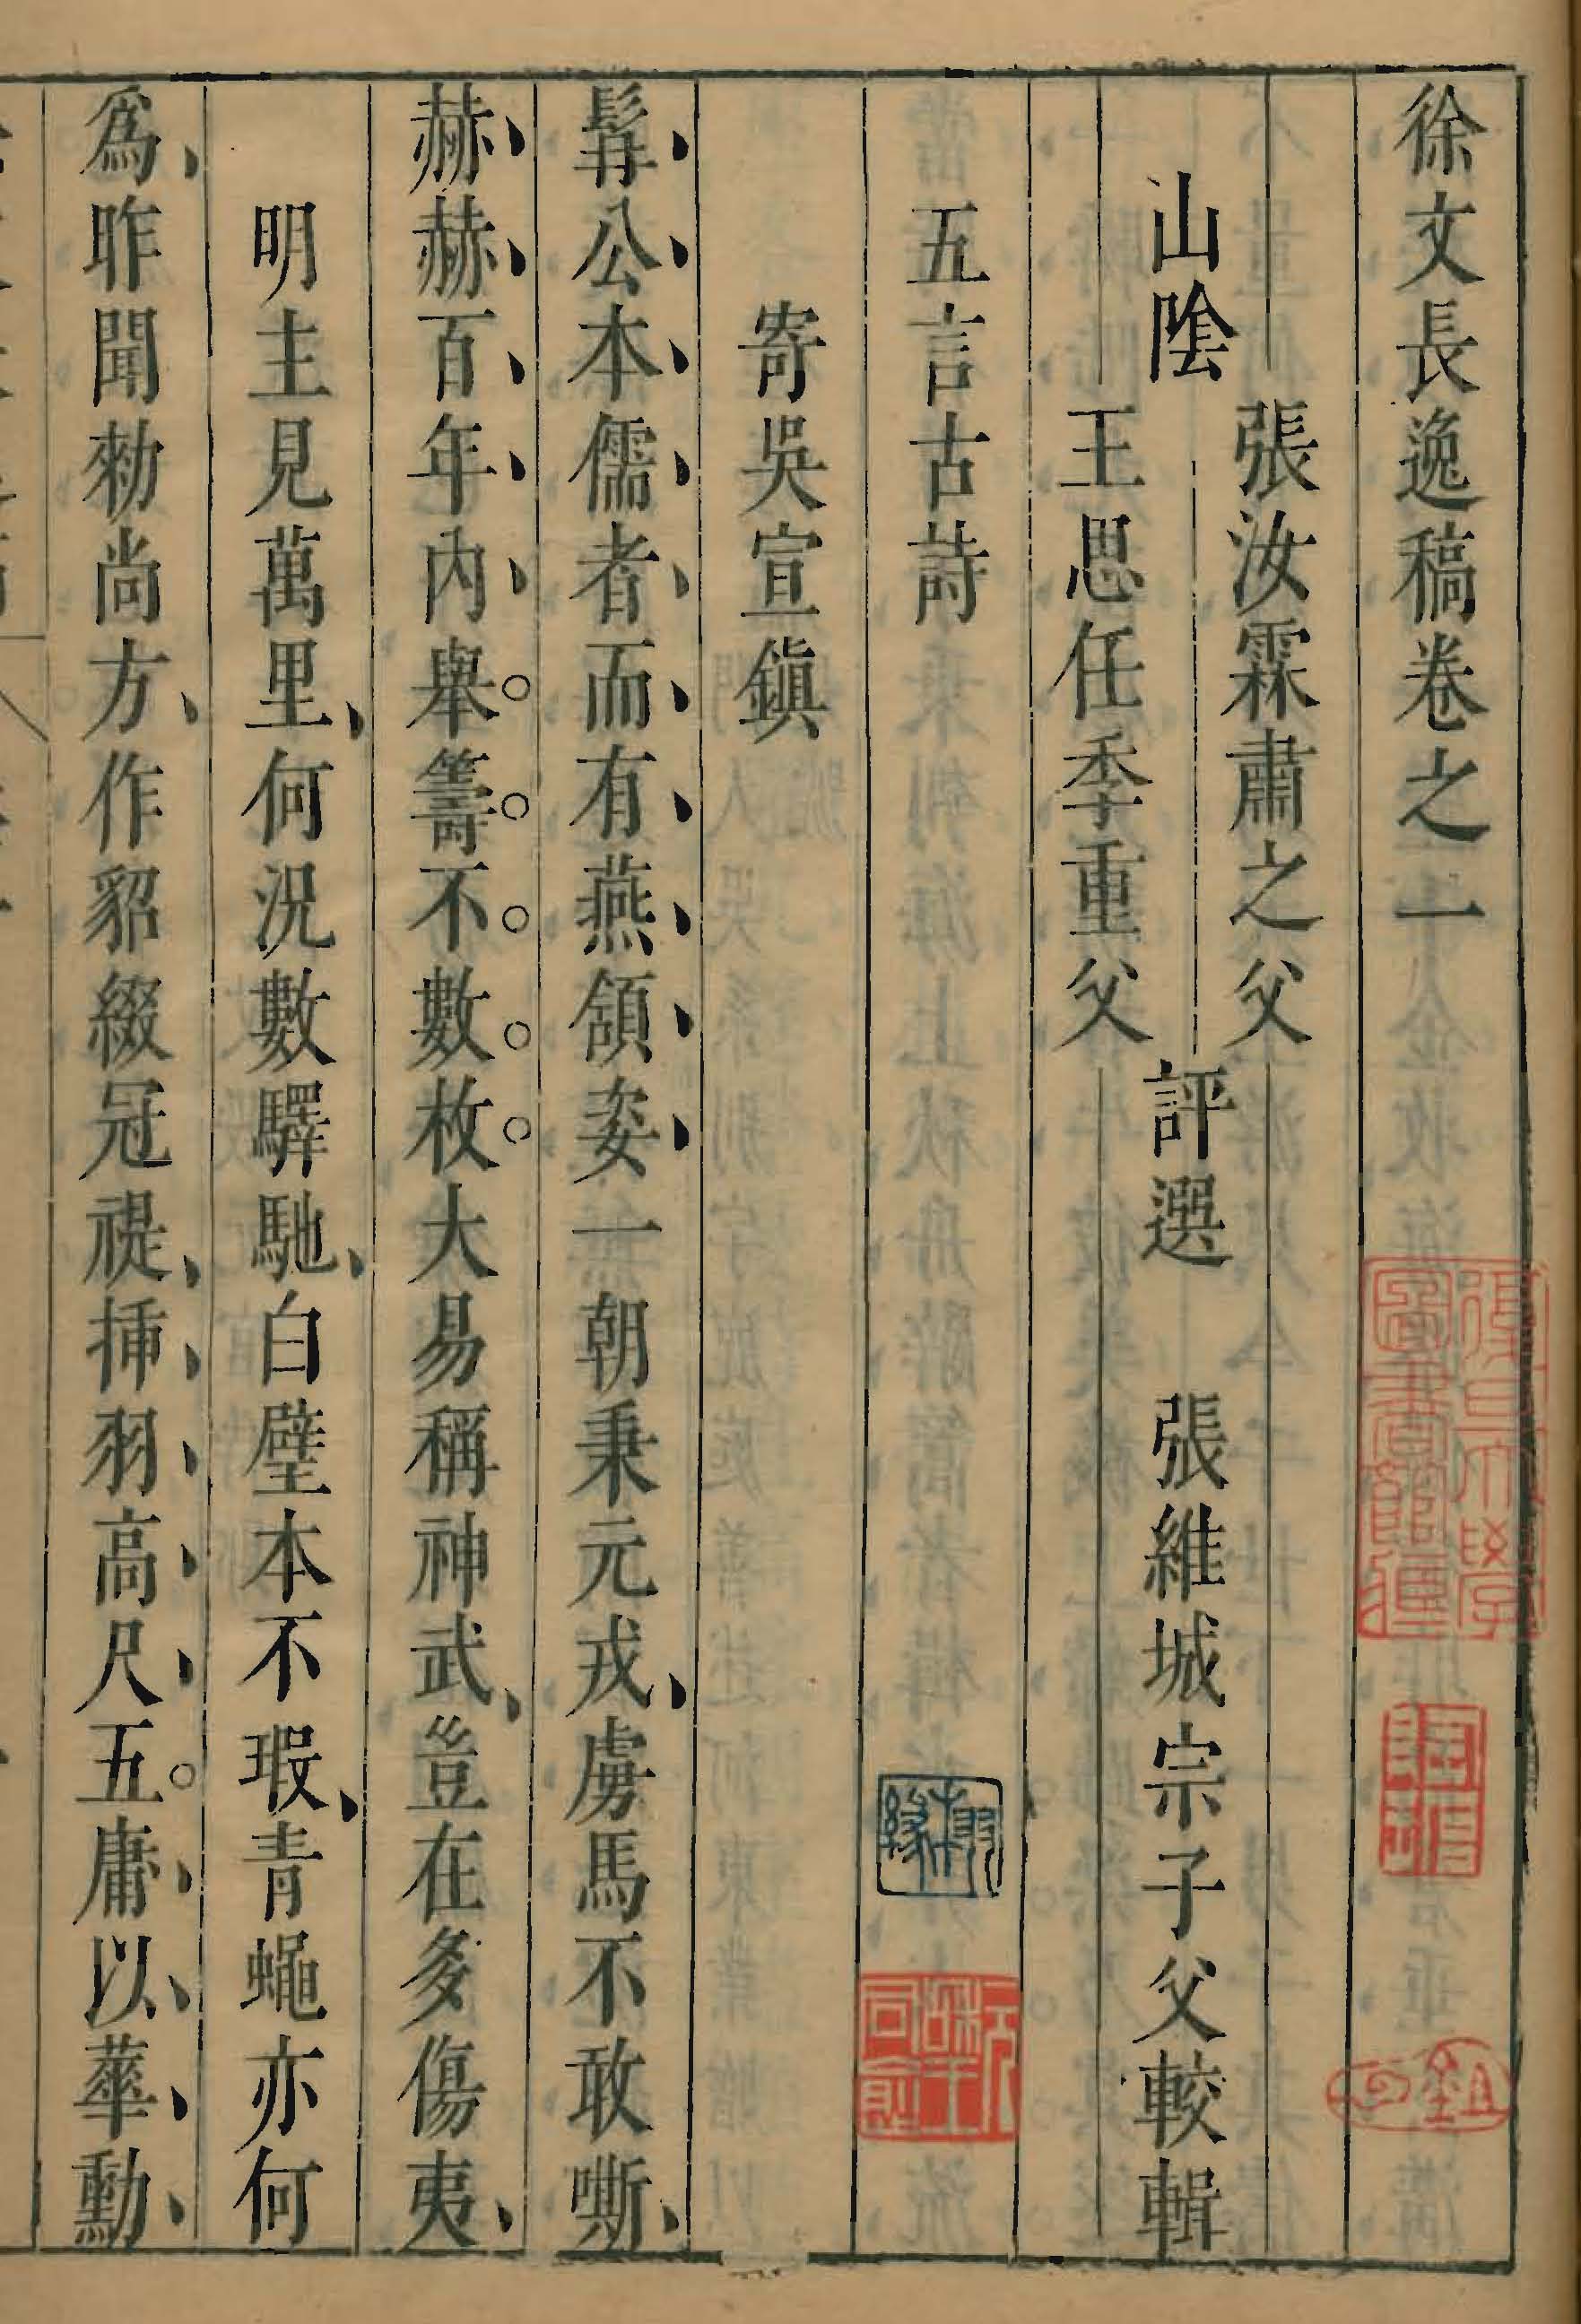 徐文長逸稿卷之一
山陰
張汝霖肅之父
王思任季重父
評選　張維城宗子父較輯
五言古詩
寄吳宣鎮
髯公本儒者而有燕頷姿一朝秉元戎虜馬不敢嘶
赫赫百年內舉籌不數枚大易稱神武豈在多傷夷
明主見萬里何況數驛馳白璧本不瑕青蠅亦何
為昨聞勑尚方作貂綴冠禔揷羽高尺五庸以華勳
復旦大學
圖書館藏